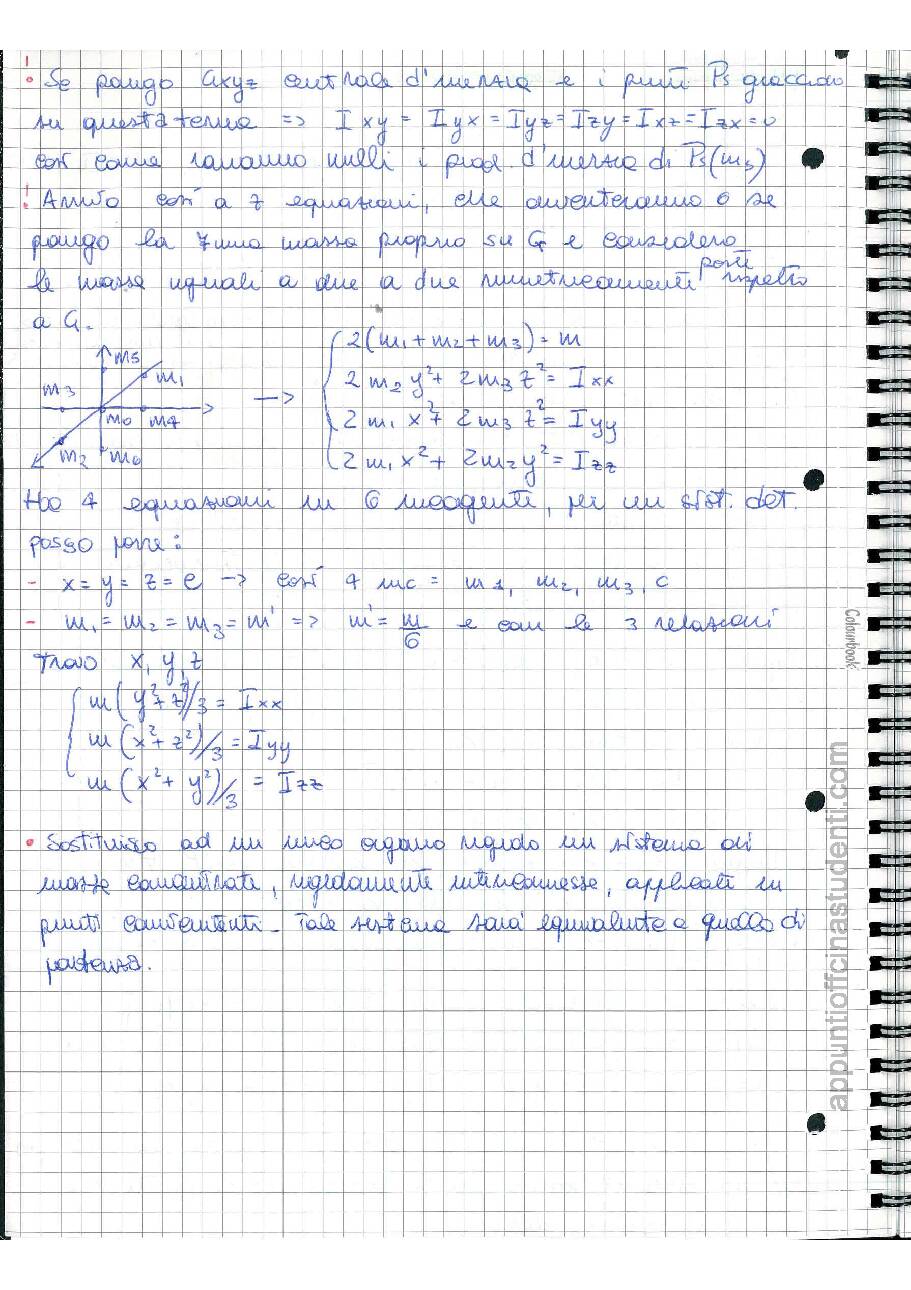 • Se pongo Gxyz centrale d'inerzia e i punti Ps giacciono
su questa terna => Ixy = Iyx = Iyz = Izy = Ixz = Izx = 0
così come saranno nulli i prod. d'inerzia di Ps(ms)
! Arrivo così a 7 equazioni, che diventeranno 0 se
pongo la 7ima massa proprio su G e considero
le masse uguali a due a due simmetricamente poste rispetto
a G.
m5
m1
m3
m0 m4
m2 m6
->
2(m1+m2+m3) = m
2 m2 y² + 2m3 z² = Ixx
2 m1 x² + 2m3 z² = Iyy
2m1 x² + 2m2 y² = Izz
Ho 4 equazioni in 6 incognite, per un sist. det.
posso porre:
- x = y = z = c -> così 4 inc = m1, m2, m3, c
- m1 = m2 = m3 = m' => m' = m/6 e con le 3 relazioni
trovo x, y, z
m(y²+z²)/3 = Ixx
m(x²+z²)/3 = Iyy
m(x²+y²)/3 = Izz
• Sostituisco ad un unico organo rigido un sistema di
masse concentrate, rigidamente interconnesse, applicate in
punti convenienti. Tale sistema sarà equivalente a quello di
partenza.
Colourbook
appuntioffcinastudenti.com